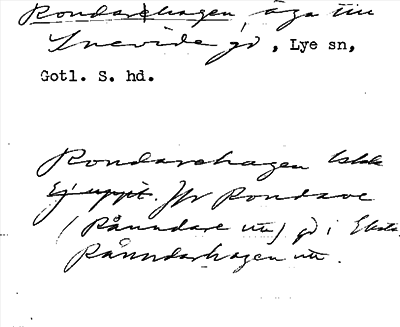 Rondarehagen, äga till
Snevide gd, Lye sn,
Gotl. S. hd.
Rondarehagen
Ej uppt. Jfr Rondare
(Rånndare utt) gd i Eksta
Rånndarhagen utt.